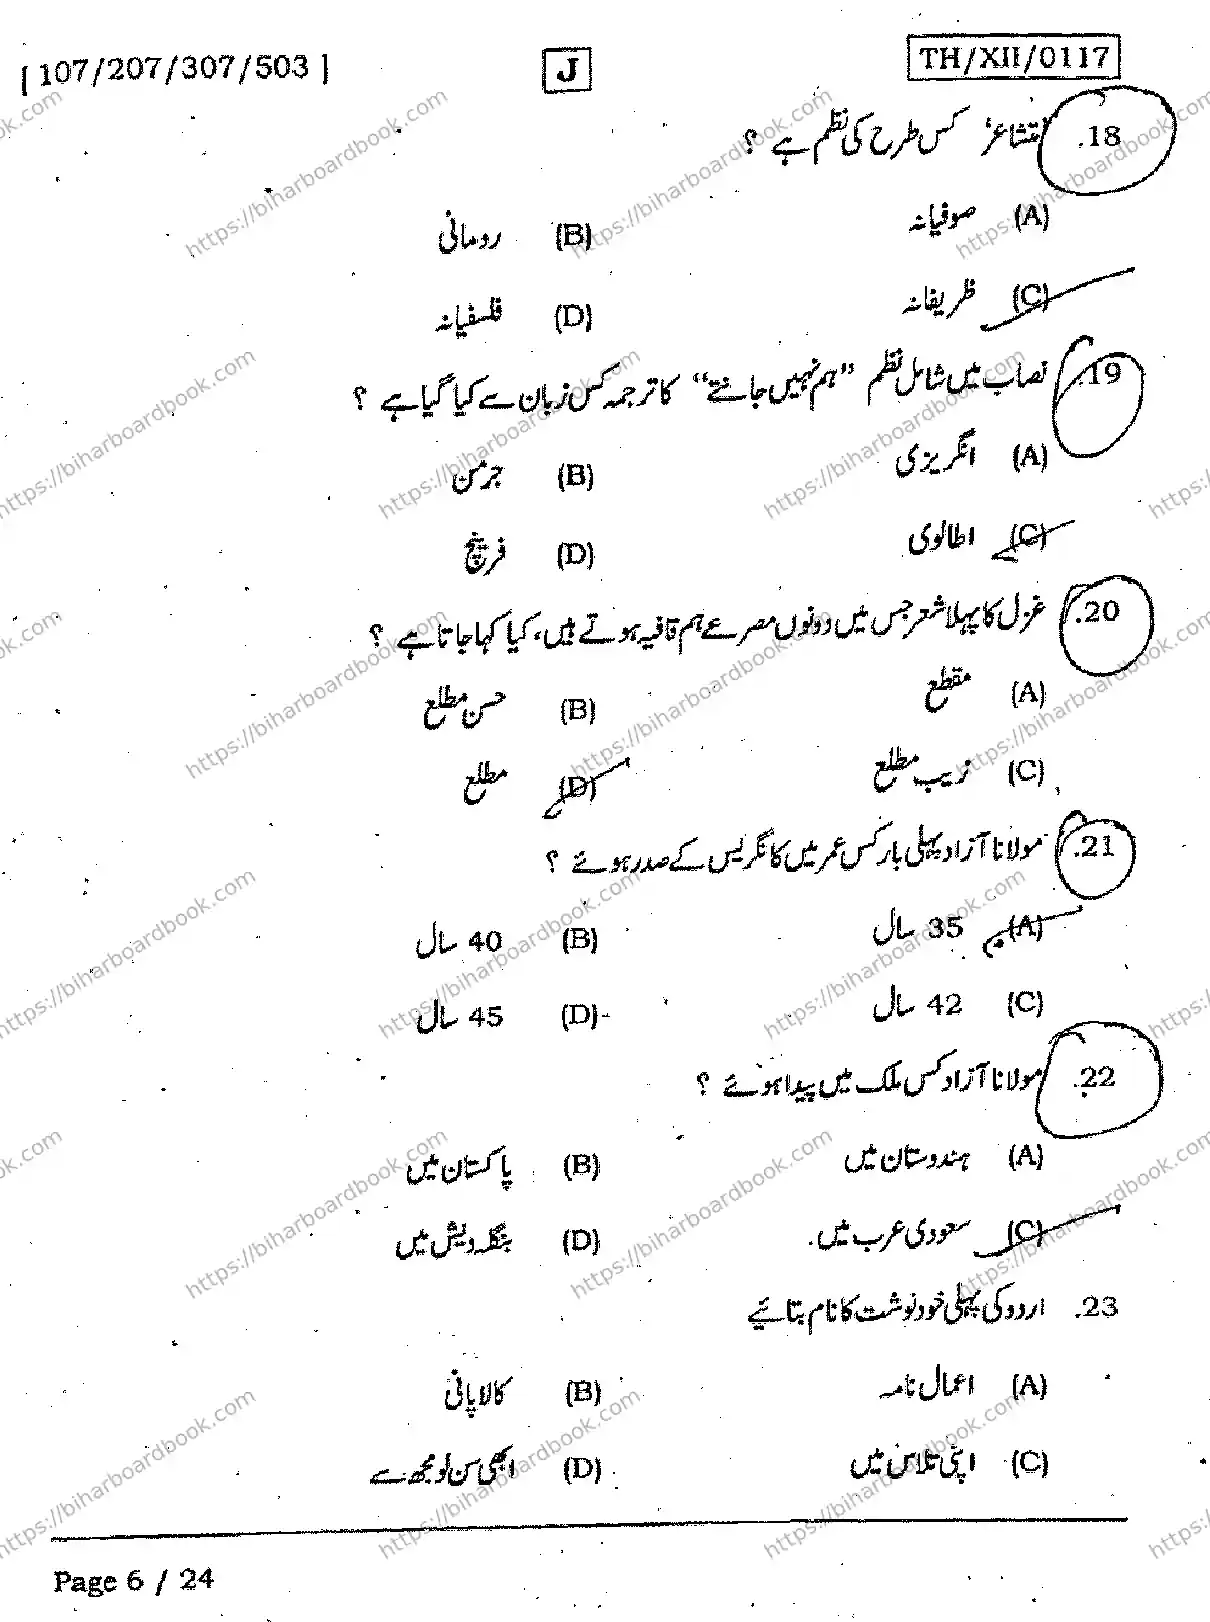 [ 107/207/307/503 ] J TH/XII/0117
18. 'متشاعر' کس طرح کی نظم ہے ؟
(A) صوفیانہ (B) رومانی
(C) ظریفانہ (D) فلسفیانہ
19. نصاب میں شامل نظم "ہم نہیں جانتے" کا ترجمہ کس زبان سے کیا گیا ہے ؟
(A) انگریزی (B) جرمن
(C) اطالوی (D) فرینچ
20. غزل کا پہلا شعر جس میں دونوں مصرعے ہم قافیہ ہوتے ہیں، کیا کہا جاتا ہے ؟
(A) مقطع (B) حسن مطلع
(C) زیب مطلع (D) مطلع
21. مولانا آزاد پہلی بار کس عمر میں کانگریس کے صدر ہوئے ؟
(A) 35 سال (B) 40 سال
(C) 42 سال (D) 45 سال
22. مولانا آزاد کس ملک میں پیدا ہوئے ؟
(A) ہندوستان میں (B) پاکستان میں
(C) سعودی عرب میں. (D) بنگلہ دیش میں
23. اردو کی پہلی خودنوشت کا نام بتائیے
(A) اعمال نامہ (B) کالا پانی
(C) اپنی تلاس میں (D) ابھی سن لو مجھ سے
Page 6 / 24
https://biharboardbook.com